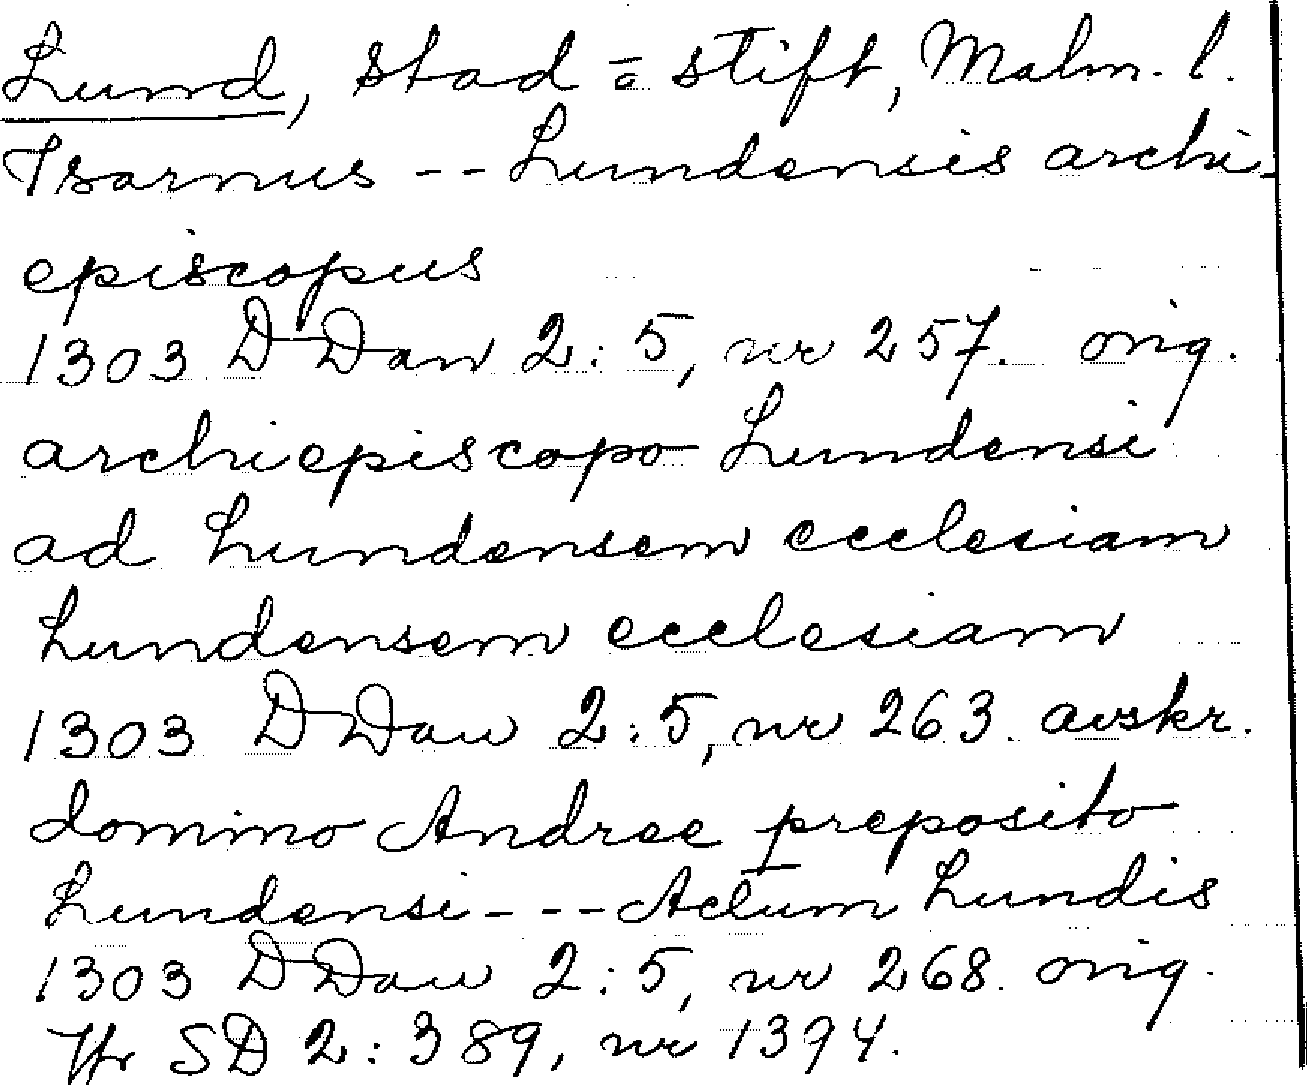 Lund, stad = stift, Malm. l.
Isarnus -- Lundensis archi-
episcopus
1303 DDan 2:5, nr 257. orig.
archiepiscopo Lundensi
ad Lundensem ecclesiam
Lundensem ecclesiam
1303 DDan 2:5, nr 263. avskr.
domino Andree preposito
Lundensi --- Actum Lundis
1303 DDan 2:5, nr 268. orig.
SD 2:389, nr 1394.